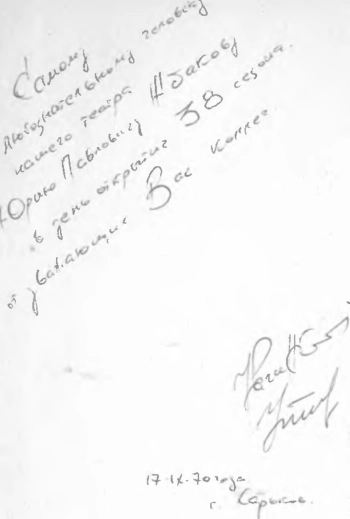 Самому человеку
любознательному
нашего театра Жбакову
Юрию Павловичу
в день открытия 38 сезона.
от уважающих Вас коллег
17-IX-70 года
г. Харьков.